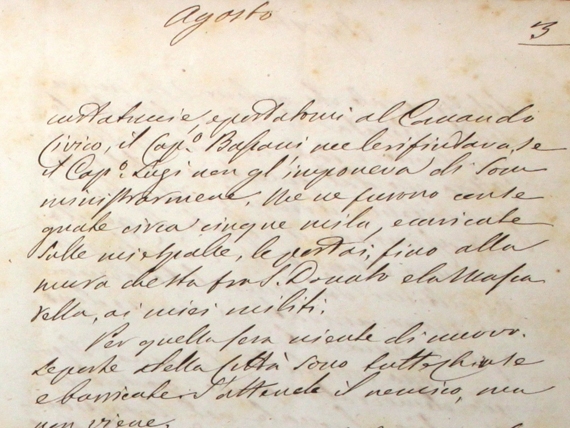 Agosto
3
e portatomi al Comando
Civico, il Cap.º Bassani me le rifiutava, se
il Cap.º Lugi non gl'imponeva di som
ministrarmene. Me ne furono conse
gnate circa cinque mila, e caricate
sulle mie spalle, le portai, fino alla
mura detta fra S. Donato e la Masca
rella, ai miei militi.
Per quella sera niente di nuovo.
Le porte della Città sono tutte chiuse
e barricate. S'attende il nemico, ma
non viene.